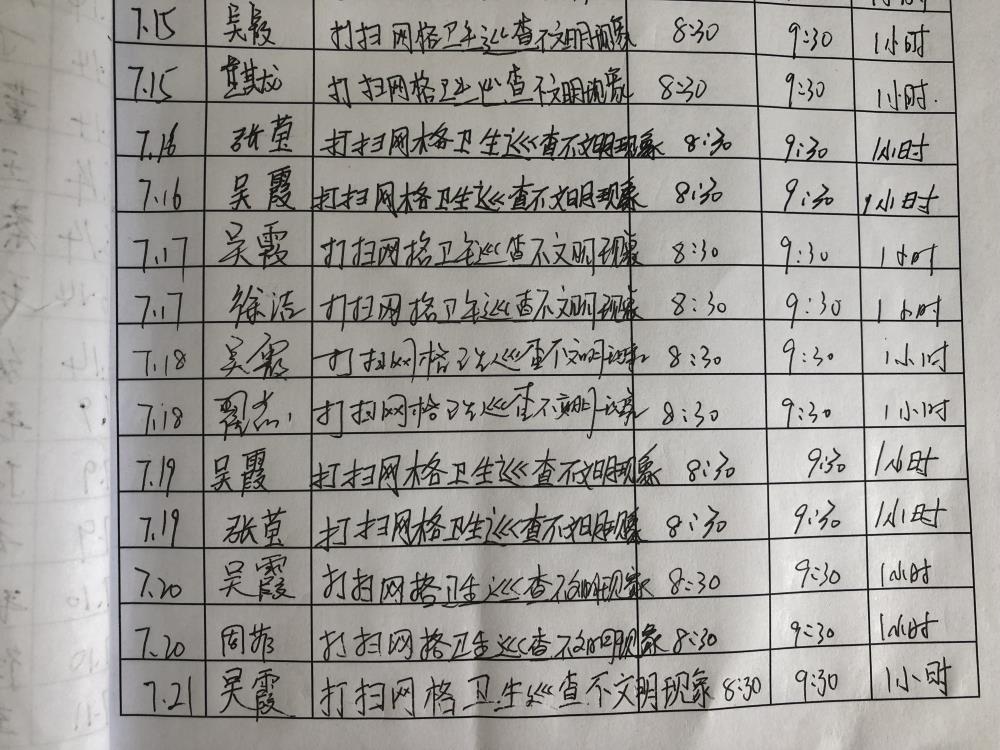 7.15 吴霞 打扫网格卫生巡查不文明现象 8:30 9:30 1小时
7.15 龙 打扫网格卫生巡查不文明现象 8:30 9:30 1小时.
7.16 张莹 打扫网格卫生巡查不文明现象 8:30 9:30 1小时
7.16 吴霞 打扫网格卫生巡查不文明现象 8:30 9:30 1小时
7.17 吴霞 打扫网格卫生巡查不文明现象 8:30 9:30 1小时
7.17 徐洁 打扫网格卫生巡查不文明现象 8:30 9:30 1小时
7.18 吴霞 打扫网格卫生巡查不文明现象 8:30 9:30 1小时
7.18 打扫网格卫生巡查不文明现象 8:30 9:30 1小时
7.19 吴霞 打扫网格卫生巡查不文明现象 8:30 9:30 1小时
7.19 张莹 打扫网格卫生巡查不文明现象 8:30 9:30 1小时
7.20 吴霞 打扫网格卫生巡查不文明现象 8:30 9:30 1小时
7.20 周菲 打扫网格卫生巡查不文明现象 8:30 9:30 1小时
7.21 吴霞 打扫网格卫生巡查不文明现象 8:30 9:30 1小时